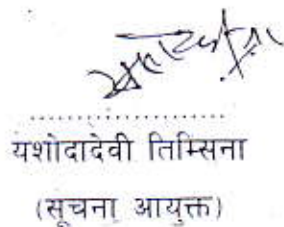 ....................
यशोदादेवी तिम्सिना
(सूचना आयुक्त)